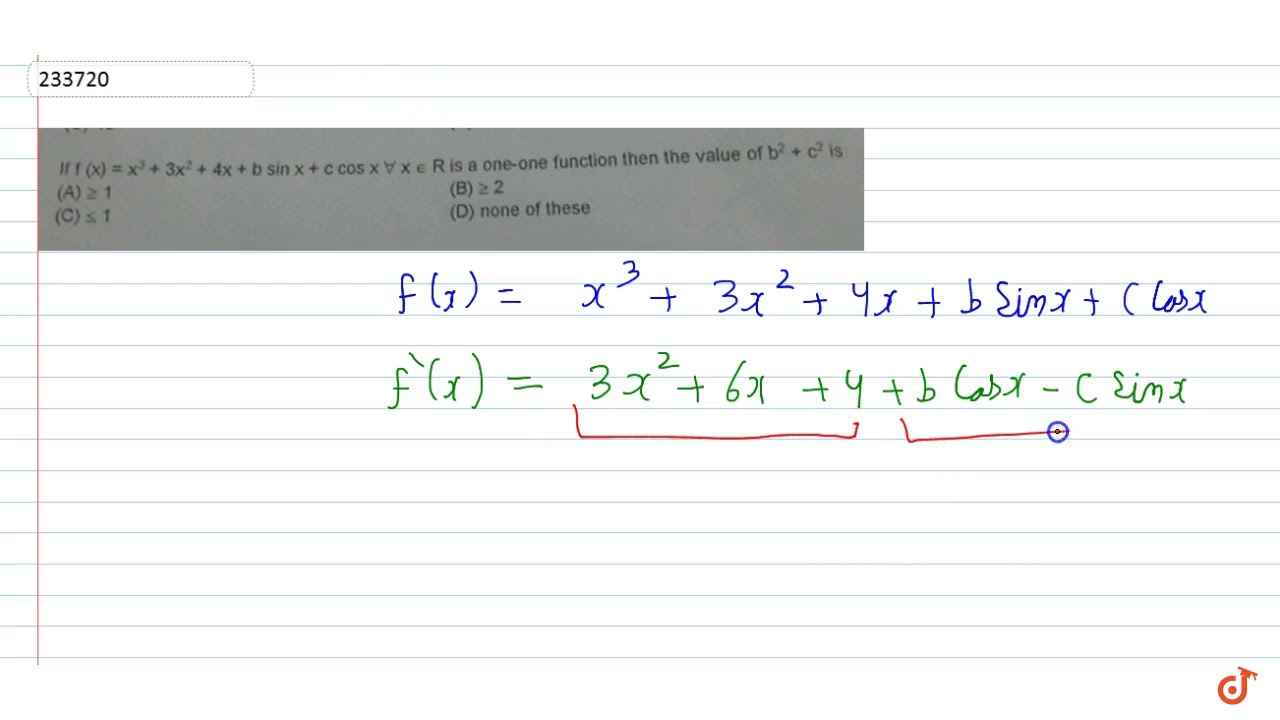 233720
If f (x) = x³ + 3x² + 4x + b sin x + c cos x ∀ x ∈ R is a one-one function then the value of b² + c² is
(A) ≥ 1 (B) ≥ 2
(C) ≤ 1 (D) none of these
f(x) = x³ + 3x² + 4x + b Sinx + C Cosx
f'(x) = 3x² + 6x + 4 + b Cosx - C Sinx